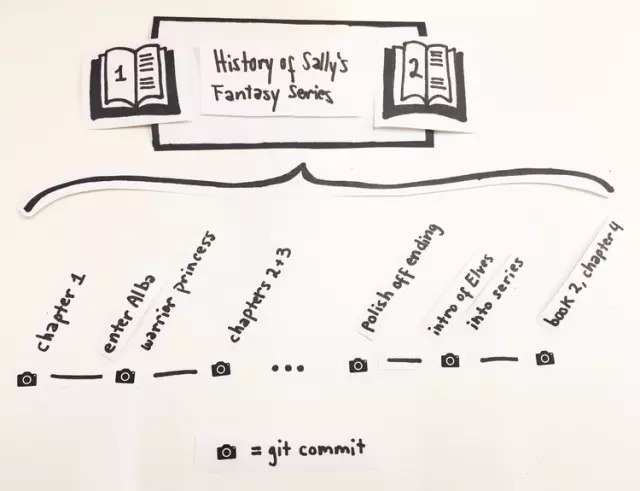 1
History of Sally's
Fantasy Series
2
chapter 1
enter Alba
warrior princess
chapters 2+3
...
polish off ending
intro of Elves
into series
book 2, chapter 4
= git commit